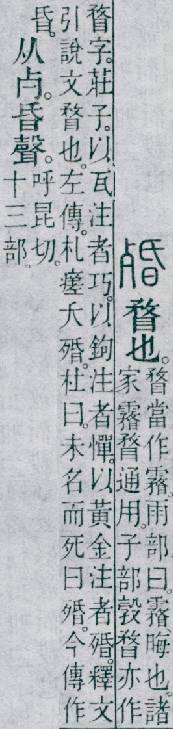 殙瞀也。瞀當作霿。雨部曰。霿晦也。諸
家霿瞀通用。子部㝅瞀亦作
瞀字。莊子。以瓦注者巧。以鉤注者憚。以黃金注者殙。釋文
引說文瞀也。左傳。札瘥夭殙。杜曰。未名而死曰殙。今傳作
昏。从歺昏聲。呼昆切。
十三部。